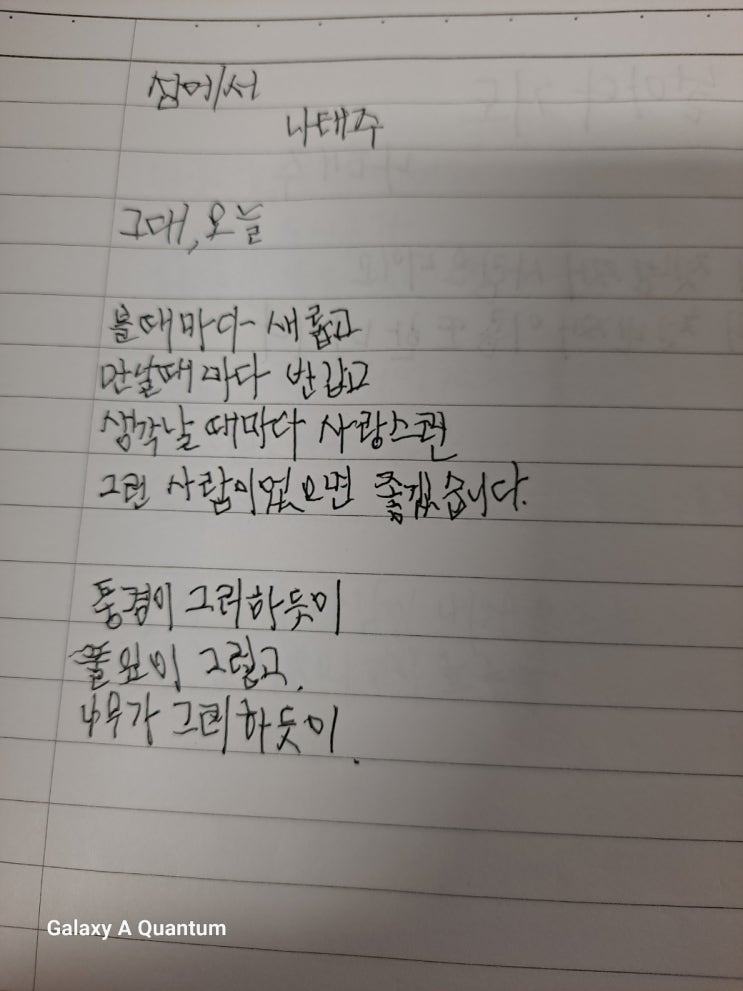 섬에서
나태주
그대, 오늘
볼때마다 새롭고
만날때마다 반갑고
생각날 때마다 사랑스런
그런 사람이었으면 좋겠습니다.
풍경이 그러하듯이
풀잎이 그렇고,
나무가 그러하듯이.
Galaxy A Quantum